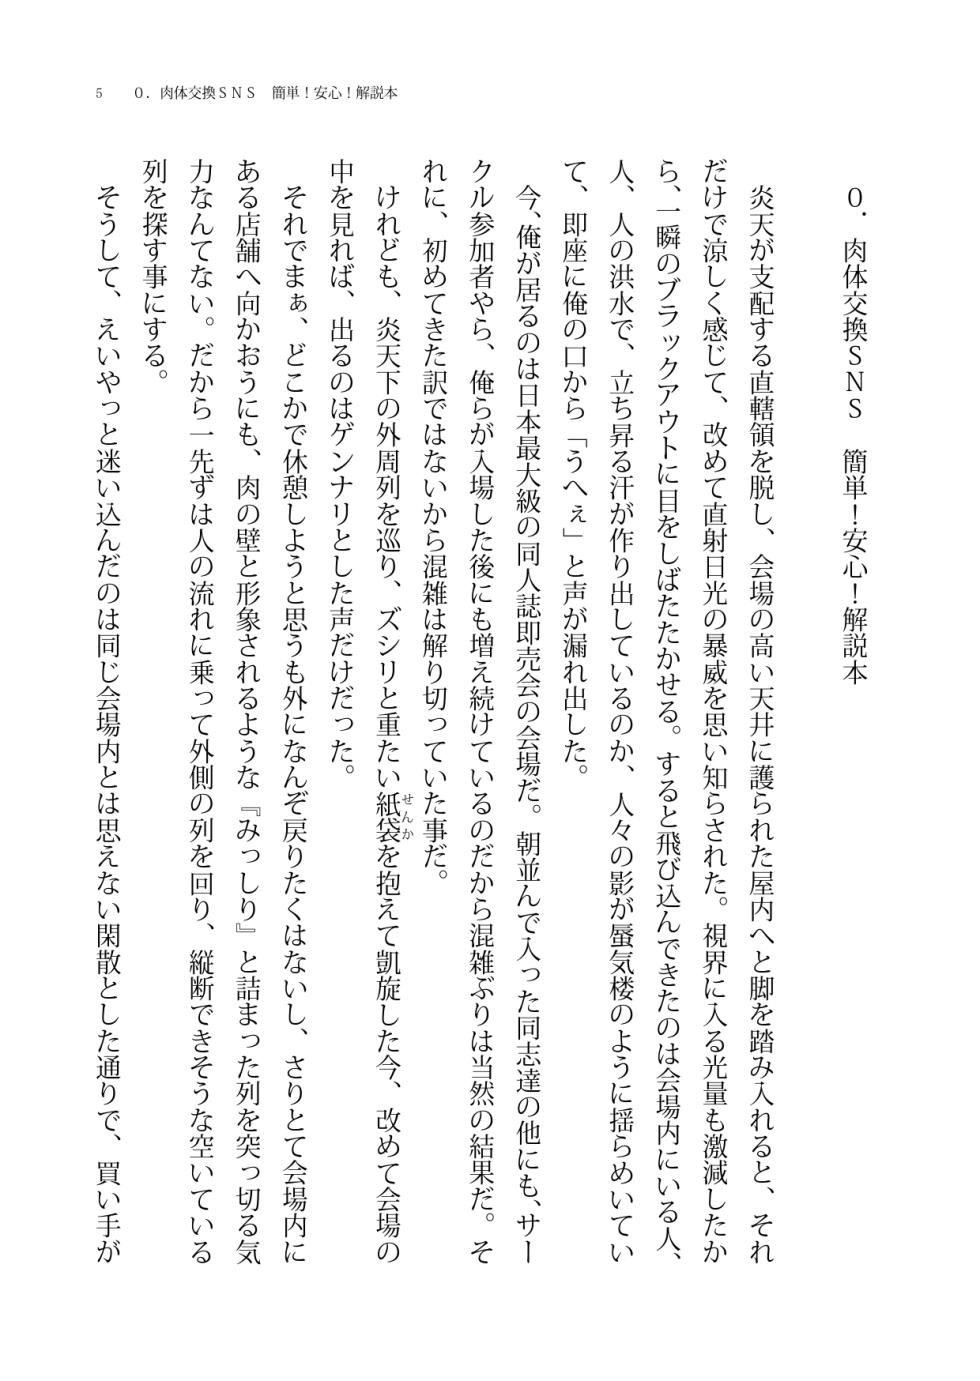 5　０．肉体交換ＳＮＳ　簡単！安心！解説本
０．肉体交換ＳＮＳ　簡単！安心！解説本
炎天が支配する直轄領を脱し、会場の高い天井に護られた屋内へと脚を踏み入れると、それ
だけで涼しく感じて、改めて直射日光の暴威を思い知らされた。視界に入る光量も激減したか
ら、一瞬のブラックアウトに目をしばたたかせる。すると飛び込んできたのは会場内にいる人、
人、人の洪水で、立ち昇る汗が作り出しているのか、人々の影が蜃気楼のように揺らめいてい
て、即座に俺の口から「うへぇ」と声が漏れ出した。
今、俺が居るのは日本最大級の同人誌即売会の会場だ。朝並んで入った同志達の他にも、サー
クル参加者やら、俺らが入場した後にも増え続けているのだから混雑ぶりは当然の結果だ。そ
れに、初めてきた訳ではないから混雑は解り切っていた事だ。
けれども、炎天下の外周列を巡り、ズシリと重たい紙袋せんかを抱えて凱旋した今、改めて会場の
中を見れば、出るのはゲンナリとした声だけだった。
それでまぁ、どこかで休憩しようと思うも外になんぞ戻りたくはないし、さりとて会場内に
ある店舗へ向かおうにも、肉の壁と形象されるような『みっしり』と詰まった列を突っ切る気
力なんてない。だから一先ずは人の流れに乗って外側の列を回り、縦断できそうな空いている
列を探す事にする。
そうして、えいやっと迷い込んだのは同じ会場内とは思えない閑散とした通りで、買い手が